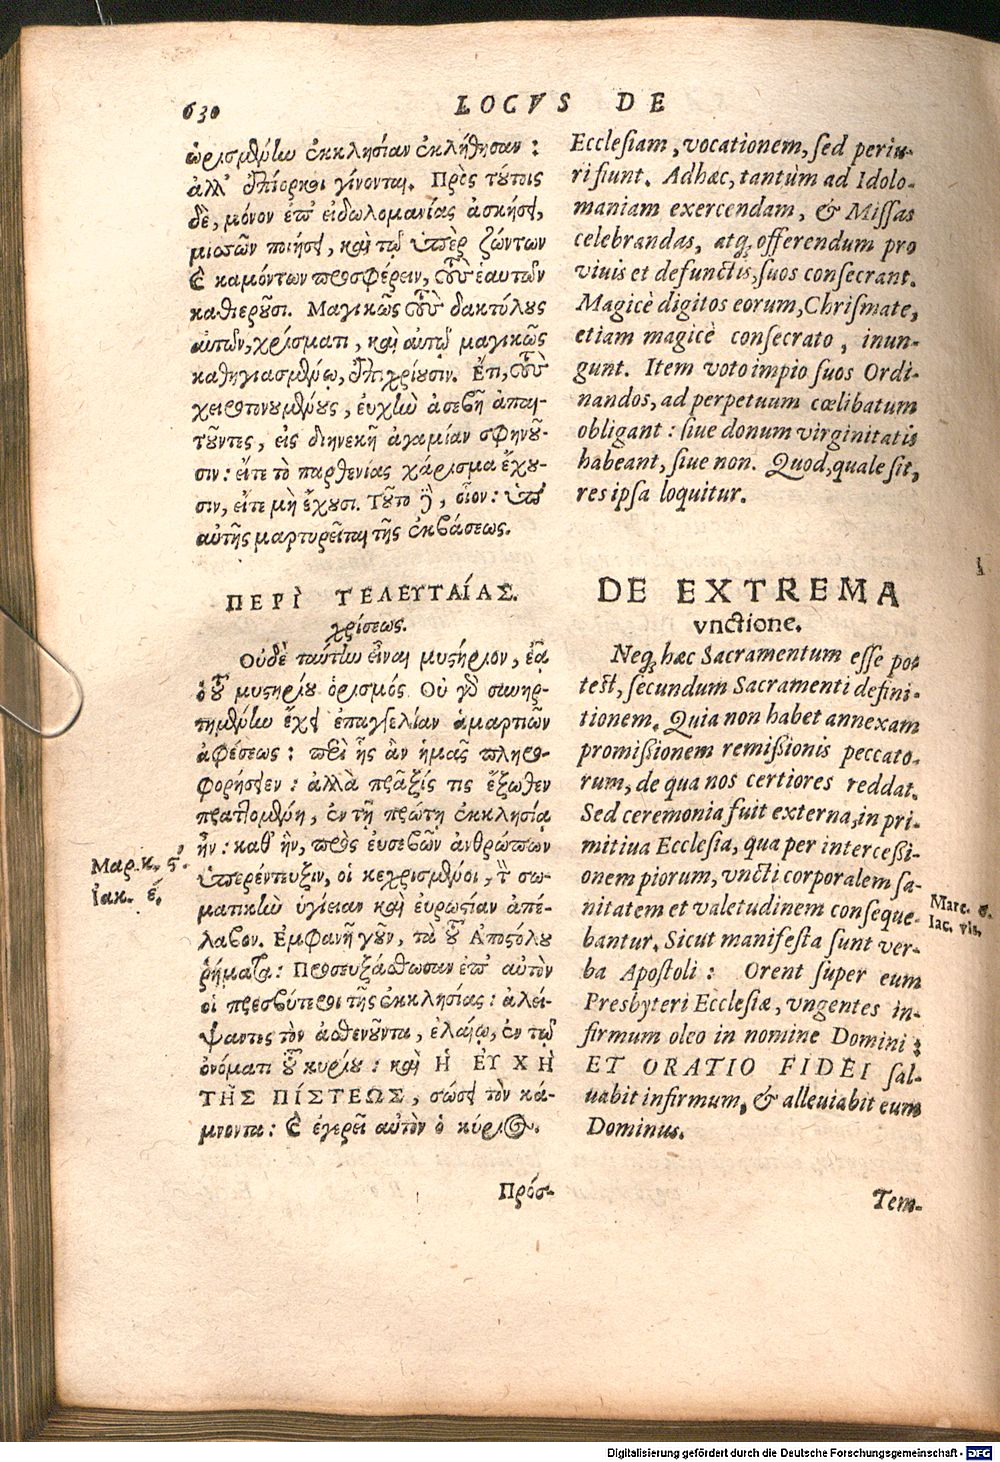 630
LOCVS DE
ὡρισμένην ἐκκλησίαν ἐκλήθησαν:
ἀλλ' ἐπίορκοι γίνονται. Πρὸς τούτοις
δὲ, μόνον ἐπ' εἰδωλομανίας ἀσκήσει,
μισσῶν ποιήσει, καὶ τῷ ὑπὲρ ζώντων
καὶ καμόντων προσφέρειν, τοὺς ἑαυτῶν
καθιεροῦσι. Μαγικῶς τοὺς δακτύλους
αὐτῶν, χρίσματι, καὶ αὐτῷ μαγικῶς
καθηγιασμένῳ, ἐπιχρίουσιν. Ἔτι, τοὺς
χειροτονουμένους, εὐχὴν ἀσεβῆ ἀπαι-
τοῦντες, εἰς διηνεκῆ ἀγαμίαν σφηνοῦ-
σιν: εἴτε τὸ παρθενίας χάρισμα ἔχου-
σιν, εἴτε μὴ ἔχουσι. Τοῦτο γὰρ, οἷον: ὑπ'
αὐτῆς μαρτυρεῖται τῆς ἐκβάσεως.
ΠΕΡὶ ΤΕΛΕΥΤΑίΑΣ.
χρίσεως.
Οὐδὲ ταύτην εἶναι μυστήριον, ἐᾷ
ὁ τοῦ μυστηρίου ὁρισμός. Οὐ γὰρ συνηρ-
τημένην ἔχει ἐπαγγελίαν ἁμαρτιῶν
ἀφέσεως: περὶ ἧς ἂν ἡμᾶς πληρο-
φορήσειεν: ἀλλὰ πρᾶξίς τις ἔξωθεν
πραττομένη, ἐν τῇ πρώτῃ ἐκκλησίᾳ
ἦν: καθ' ἣν, πρὸς εὐσεβῶν ἀνθρώπων
ὑπερέντευξιν, οἱ κεχρισμένοι, τὴν σω-
ματικὴν ὑγίειαν καὶ εὐρωστίαν ἀπέ-
λαβον. Ἐμφανῆ γοῦν, τὰ τοῦ Ἀποστόλου
ῥήματα: Προσευξάσθωσαν ἐπ' αὐτὸν
οἱ πρεσβύτεροι τῆς ἐκκλησίας: ἀλεί-
ψαντες τὸν ἀσθενοῦντα, ἐλαίῳ, ἐν τῷ
ὀνόματι τοῦ κυρίου: καὶ Ἡ ΕΥΧΗ
ΤΗΣ ΠίΣΤΕΩΣ, σώσει τὸν κά-
μνοντα: καὶ ἐγερεῖ αὐτὸν ὁ κύριος.
Πρόσ-
Μαρ. κ. ϛ'.
Ἰακ. έ.
Ecclesiam, vocationem, sed periu-
ri fiunt. Adhæc, tantùm ad Idolo-
maniam exercendam, & Missas
celebrandas, atq; offerendum pro
viuis et defunctis, suos consecrant.
Magicè digitos eorum, Chrismate,
etiam magicè consecrato, inun-
gunt. Item voto impio suos Ordi-
nandos, ad perpetuum cœlibatum
obligant: siue donum virginitatis
habeant, siue non. Quod, quale sit,
res ipsa loquitur.
DE EXTREMA
vnctione.
Neq; hæc Sacramentum esse po-
test, secundum Sacramenti defini-
tionem. Quia non habet annexam
promißionem remißionis peccato-
rum, de qua nos certiores reddat.
Sed ceremonia fuit externa, in pri-
mitiua Ecclesia, qua per intercessi-
onem piorum, vncti corporalem sa-
nitatem et valetudinem conseque-
bantur. Sicut manifesta sunt ver-
ba Apostoli: Orent super eum
Presbyteri Ecclesiæ, vngentes in-
firmum oleo in nomine Domini:
ET ORATIO FIDEI sal-
uabit infirmum, & alleuiabit eum
Dominus.
Tem-
Marc. 6.
Iac. vls.